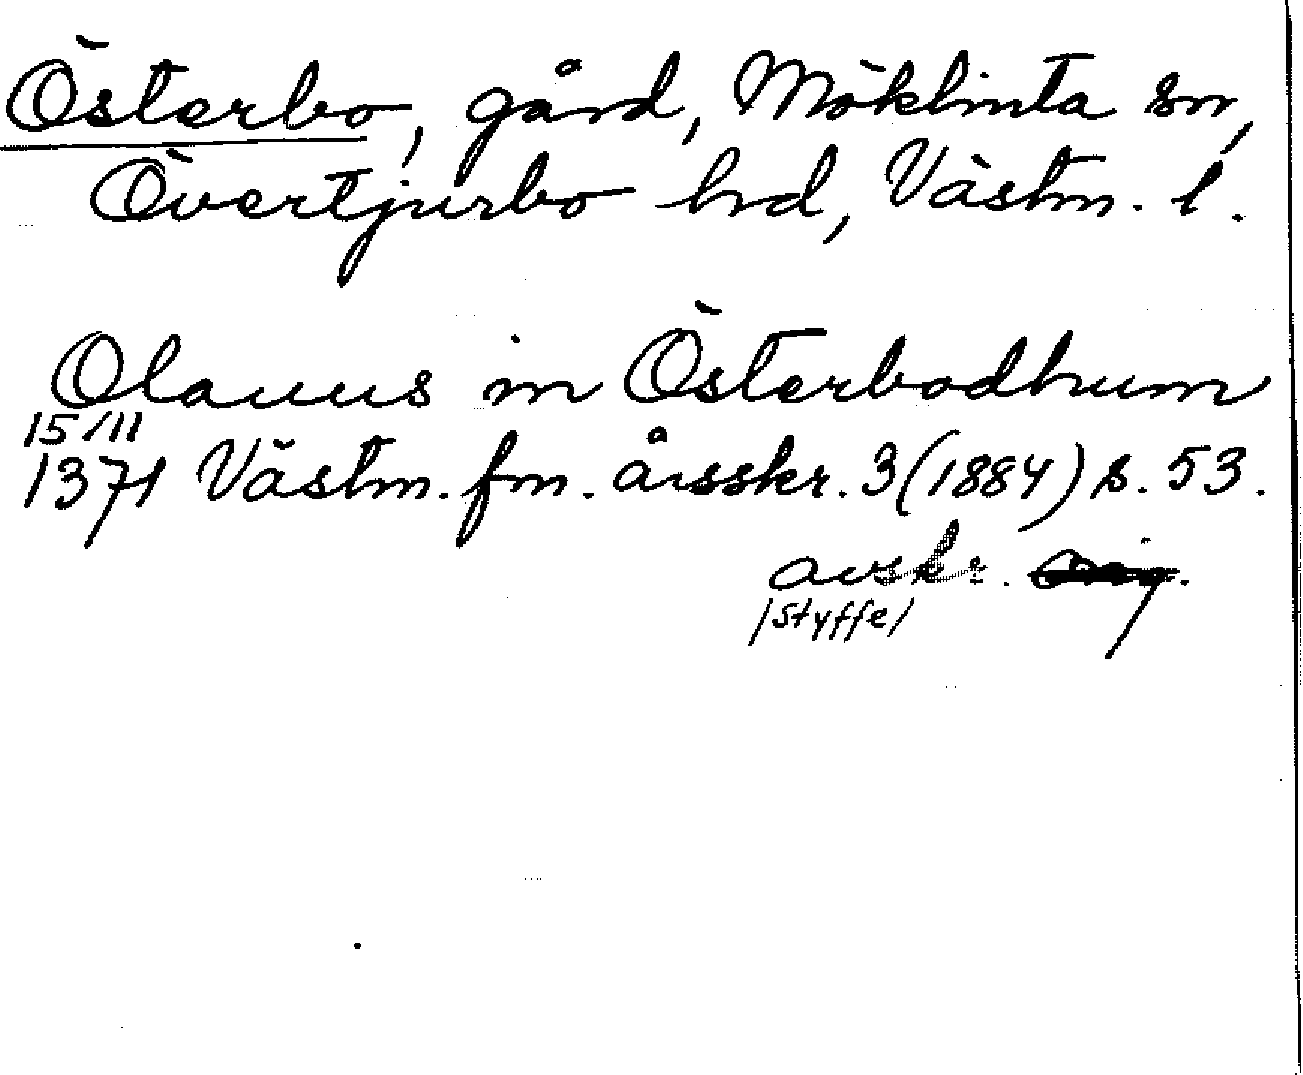 Österbo, gård, Möklinta sn,
Övertjurbo hd, Västm. l.
Olauus in Österbodhum
15/11
1371 Västm. fm. årsskr. 3 (1884) s. 53.
avskr.
/Styffe/